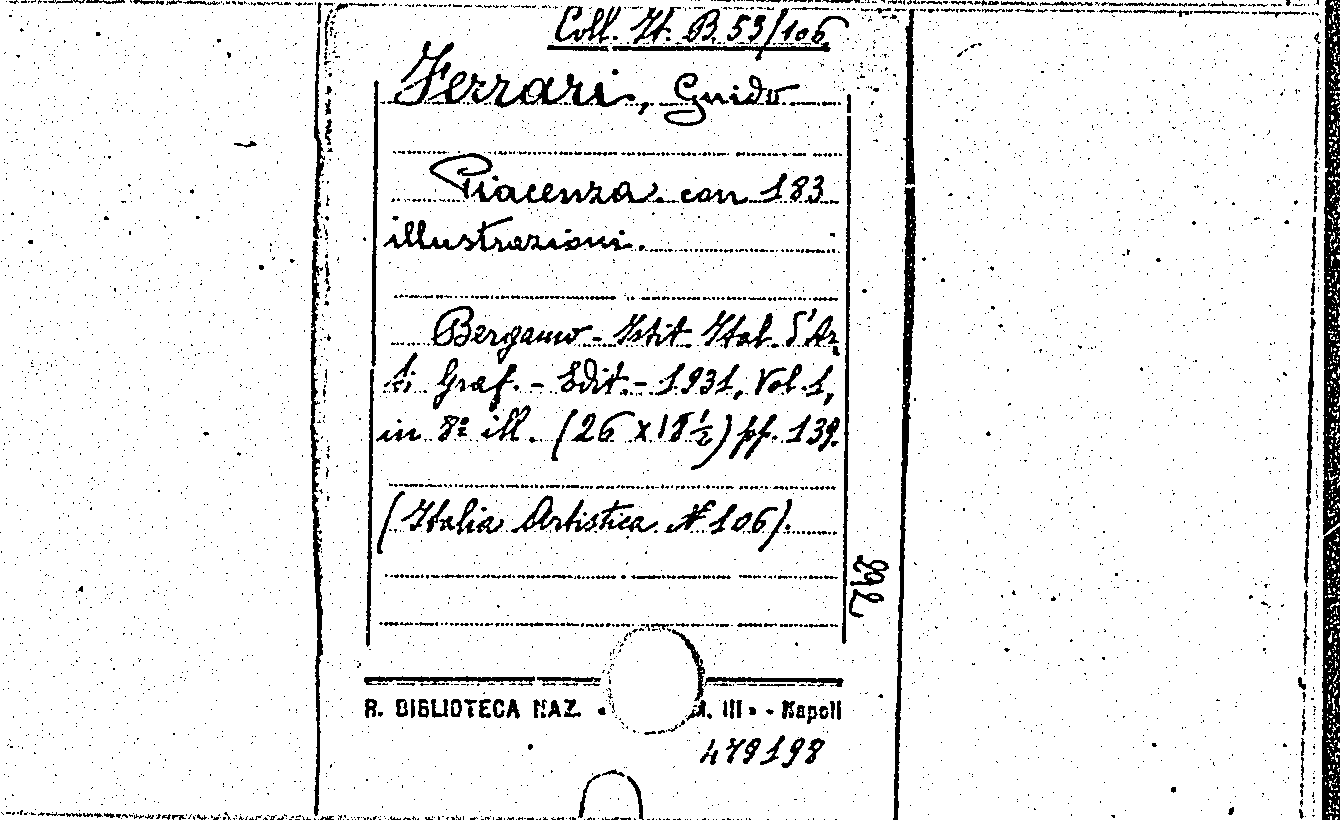 Coll. It. B. 53/106
Ferrari, Guido
Piacenza. con 183
illustrazioni.
Bergamo - Istit. Ital. d'Ar
ti Graf. - Edit. - 1931, Vol. 1,
in 8º ill. (26 x 18 ½) pp. 139.
(Italia Artistica N. 106).
R. BIBLIOTECA NAZ. « M. III » - Napoli
479198